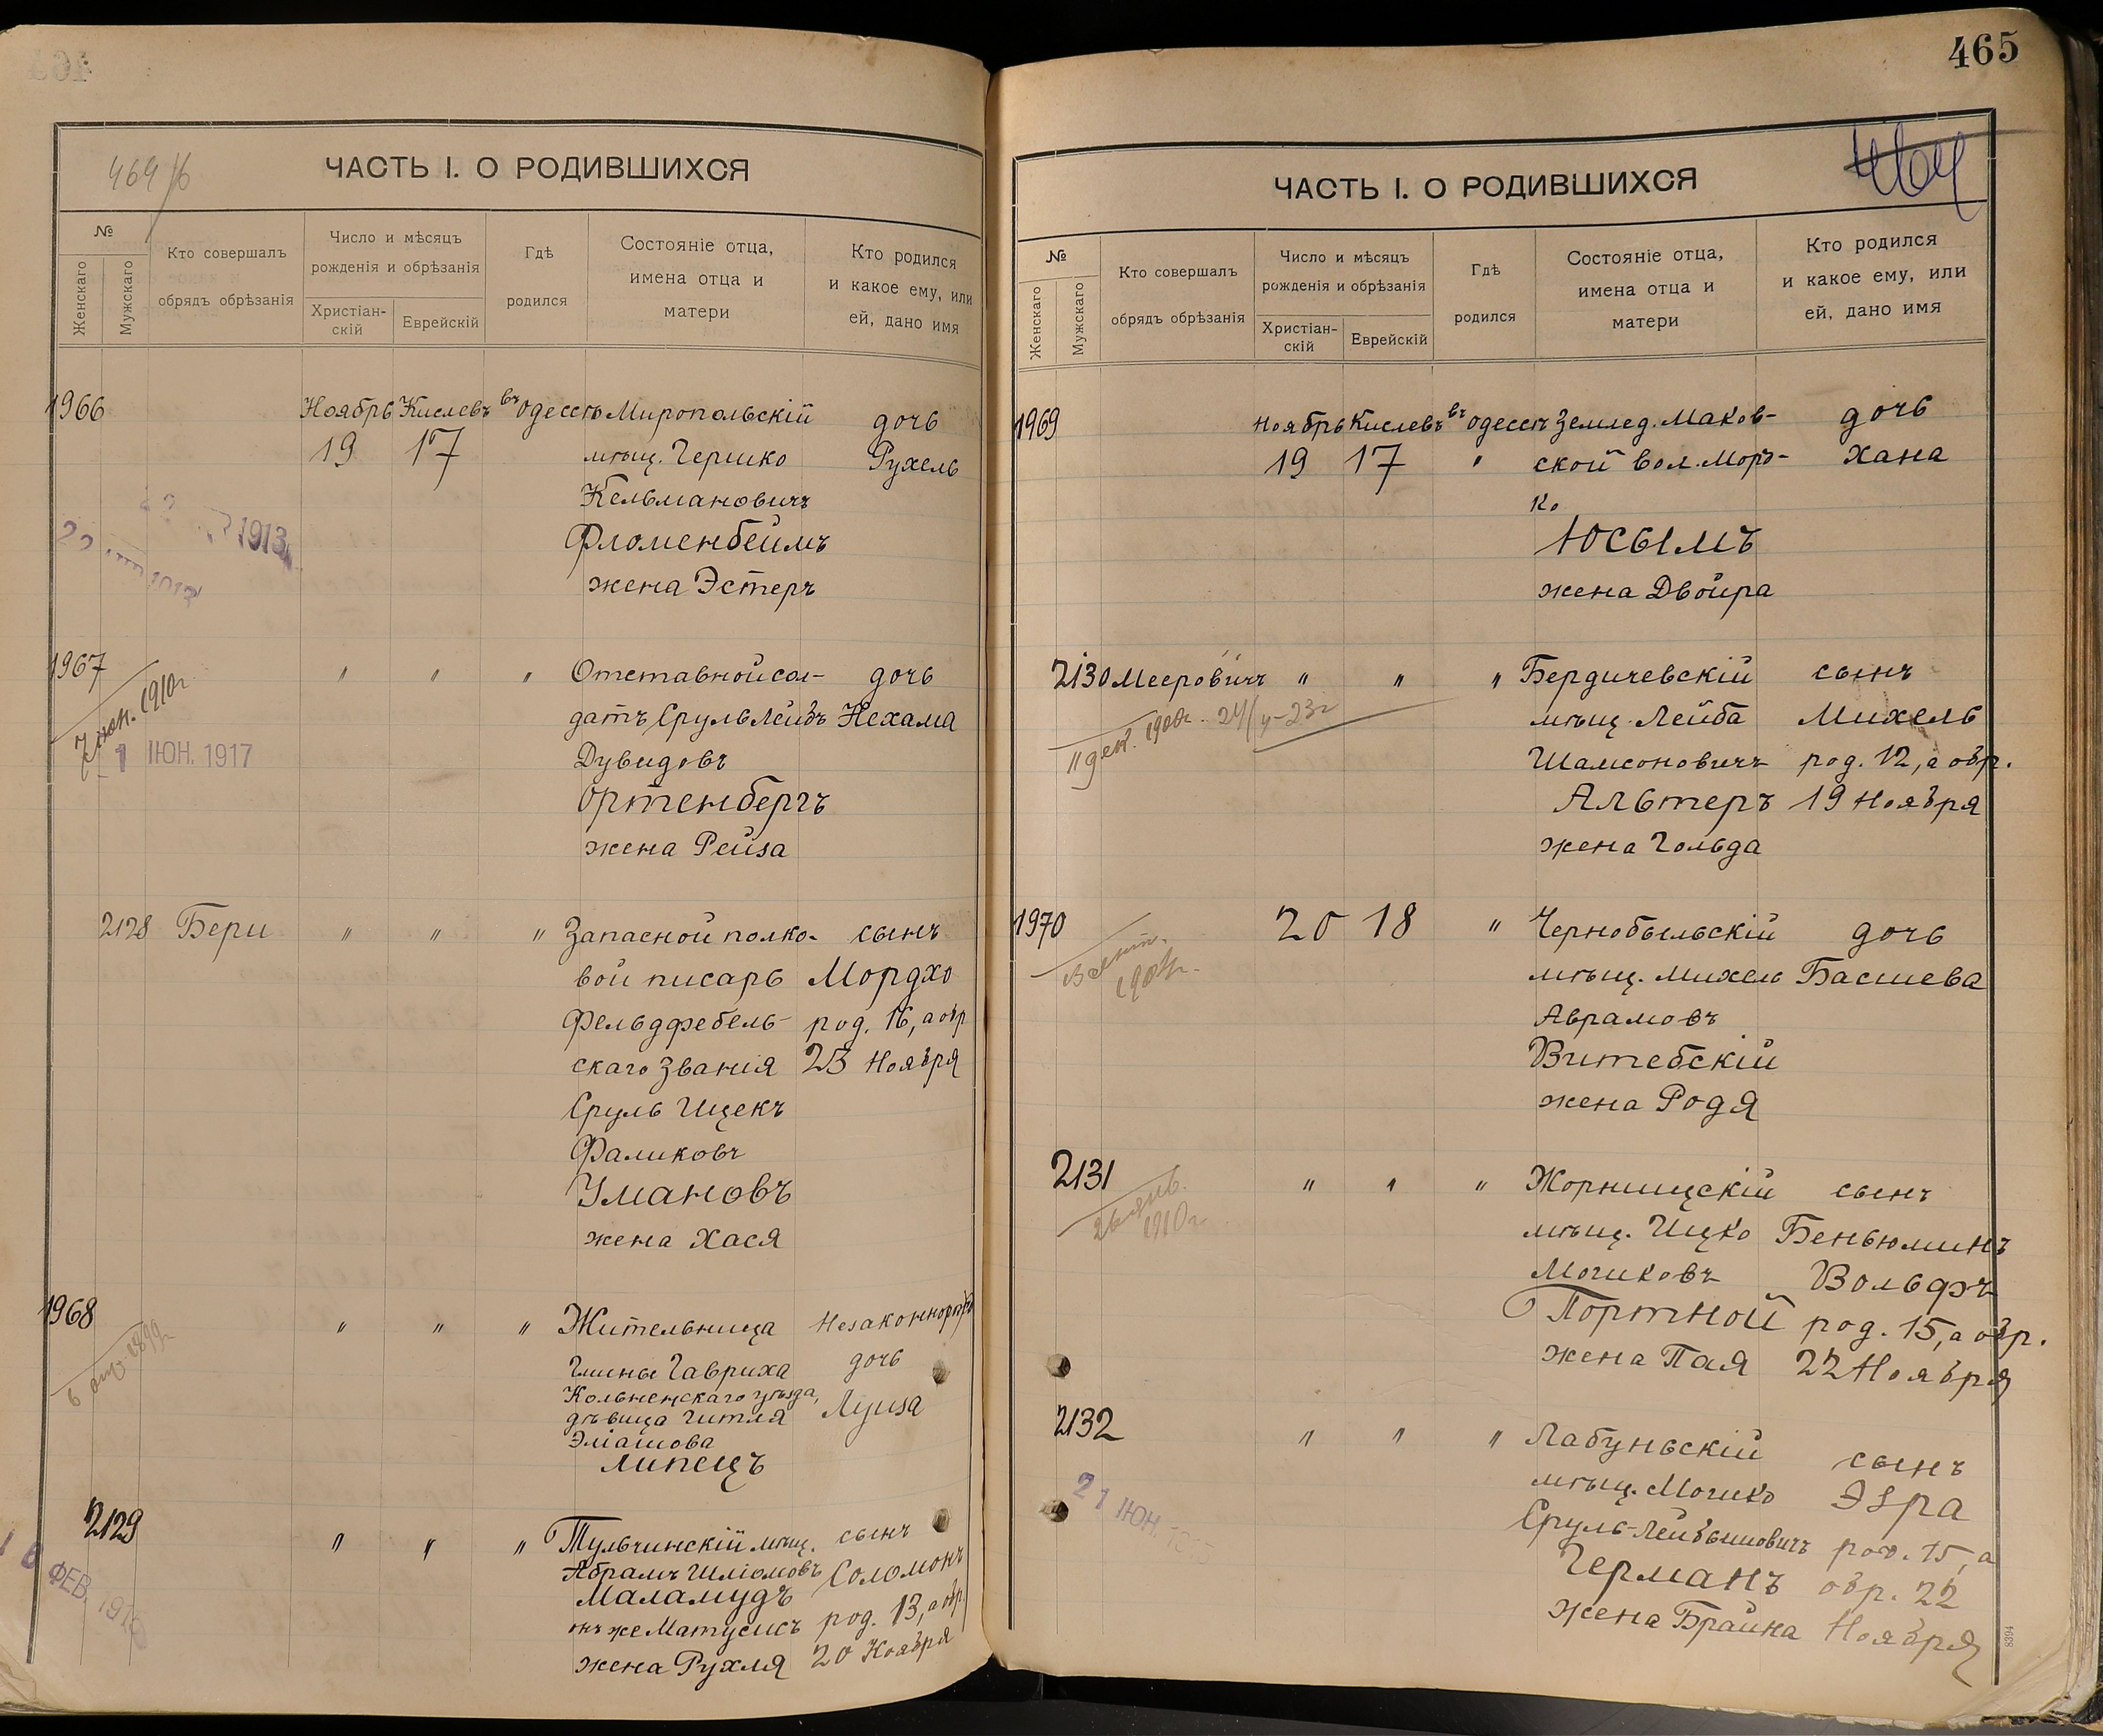 465
464/б
ЧАСТЬ I. О РОДИВШИХСЯ
№
Женскаго
Мужскаго
Кто совершалъ
обрядъ обрѣзанія
Число и мѣсяцъ
рожденія и обрѣзанія
Христіан-
скій
Еврейскій
Гдѣ
родился
Состояніе отца,
имена отца и
матери
Кто родился
и какое ему, или
ей, дано имя
1966 Ноябрь Кислевъ въ Одессѣ Миропольскій дочь
19 17 мѣщ. Гершко Рухель
Кельмановичъ
Фломенбеймъ
жена Эстеръ
1913
1967 " " " Отставной сол- дочь
датъ Сруль Лейбъ Нехама
Дувидовъ
Ортенбергъ
жена Рейза
7 іюн. 1910 г
1 ІЮН. 1917
2128 Бери " " " Запасной полко- сынъ
вой писарь Мордхо
Фельдфебель- род. 16, а обр
скаго званія 23 Ноября
Сруль Ицекъ
Фаликовъ
Умановъ
жена Хася
1968 " " " Жительница Незаконнорож
гмины Гавриха дочь
Кольненскаго уѣзда, Луиза
дѣвица Гитля
Эліашова
Липецъ
2129 " " " Тульчинскій мѣщ. сынъ
Абрамъ Шліомовъ Соломонъ
Маламудъ
онъ же Матусисъ род. 13, а обр.
жена Рухля 20 Ноября
16 ФЕВ. 1916
464
ЧАСТЬ I. О РОДИВШИХСЯ
№
Женскаго
Мужскаго
Кто совершалъ
обрядъ обрѣзанія
Число и мѣсяцъ
рожденія и обрѣзанія
Христіан-
скій
Еврейскій
Гдѣ
родился
Состояніе отца,
имена отца и
матери
Кто родился
и какое ему, или
ей, дано имя
1969 Ноябрь Кислевъ въ Одессѣ Землед. Маков- дочь
19 17 " ской вол. Морд- Хана
ко
Юсымъ
жена Двойра
2130 Мееровичъ " " " Бердичевскій сынъ
мѣщ. Лейба Михель
Шамсоновичъ род. 12, а обр.
Альтеръ 19 Ноября
жена Гольда
11 дек. 1908 г.
1970 20 18 " Чернобыльскій дочь
мѣщ. Михель Басшева
Аврамовъ
Витебскій
жена Родя
2131 " " " Жорнищскій сынъ
мѣщ. Ицко Беньюминъ
Мошковъ Вольфъ
Портной род. 15, а обр.
жена Пая 22 Ноября
26 янв.
1910 г
2132 " " " Лабуньскій сынъ
мѣщ. Мошко Эзра
Сруль-Лейбышовичъ род. 15, а
Германъ обр. 22
жена Брайна Ноября
21 ІЮН.
8394